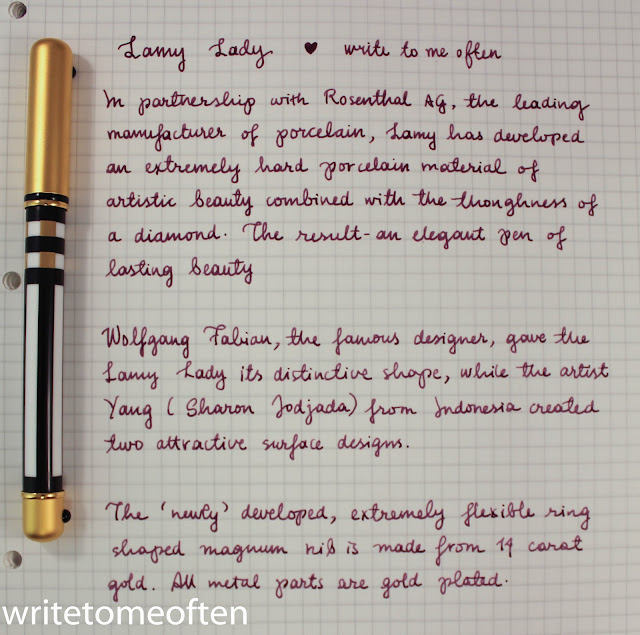 Lamy Lady ♥ write to me often
In partnership with Rosenthal AG, the leading
manufacturer of porcelain, Lamy has developed
an extremely hard porcelain material of
artistic beauty combined with the thoughness of
a diamond. The result - an elegant pen of
lasting beauty
Wolfgang Fabian, the famous designer, gave the
Lamy Lady its distinctive shape, while the artist
Yang (Sharon Jodjada) from Indonesia created
two attractive surface designs.
The 'newly' developed, extremely flexible ring
shaped magnum nib is made from 14 carat
gold. All metal parts are gold plated.
writetomeoften